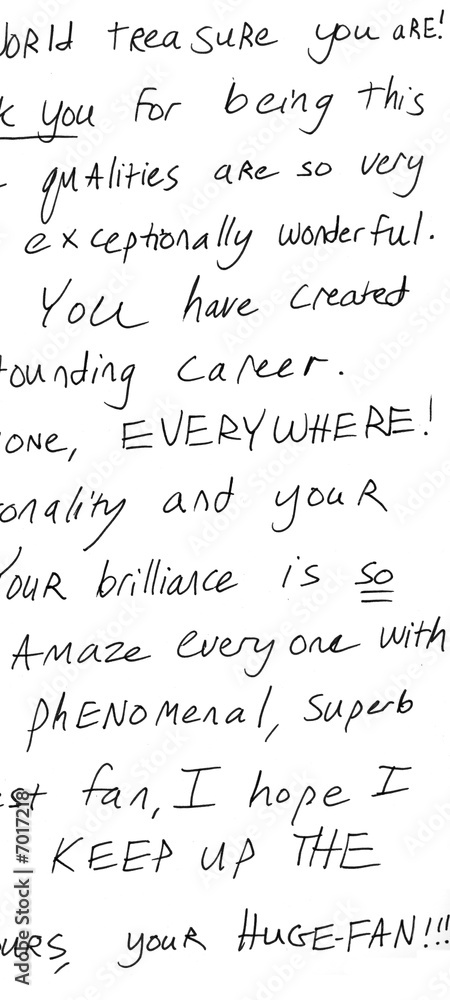 WORLD treasure you ARE!
k you for being this
qualities are so very
exceptionally wonderful.
You have created
tounding career.
one, EVERYWHERE!
onality and your
Your brilliance is so
Amaze everyone with
phenomenal, superb
est fan, I hope I
KEEP UP THE
ours, your HUGE-FAN!!!
Adobe Stock | #7017218